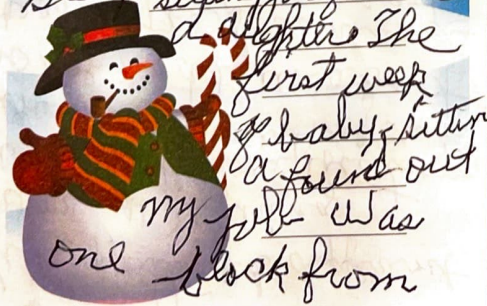 daughter. The
first week
of baby-sitting
I found out
my job was
one block from